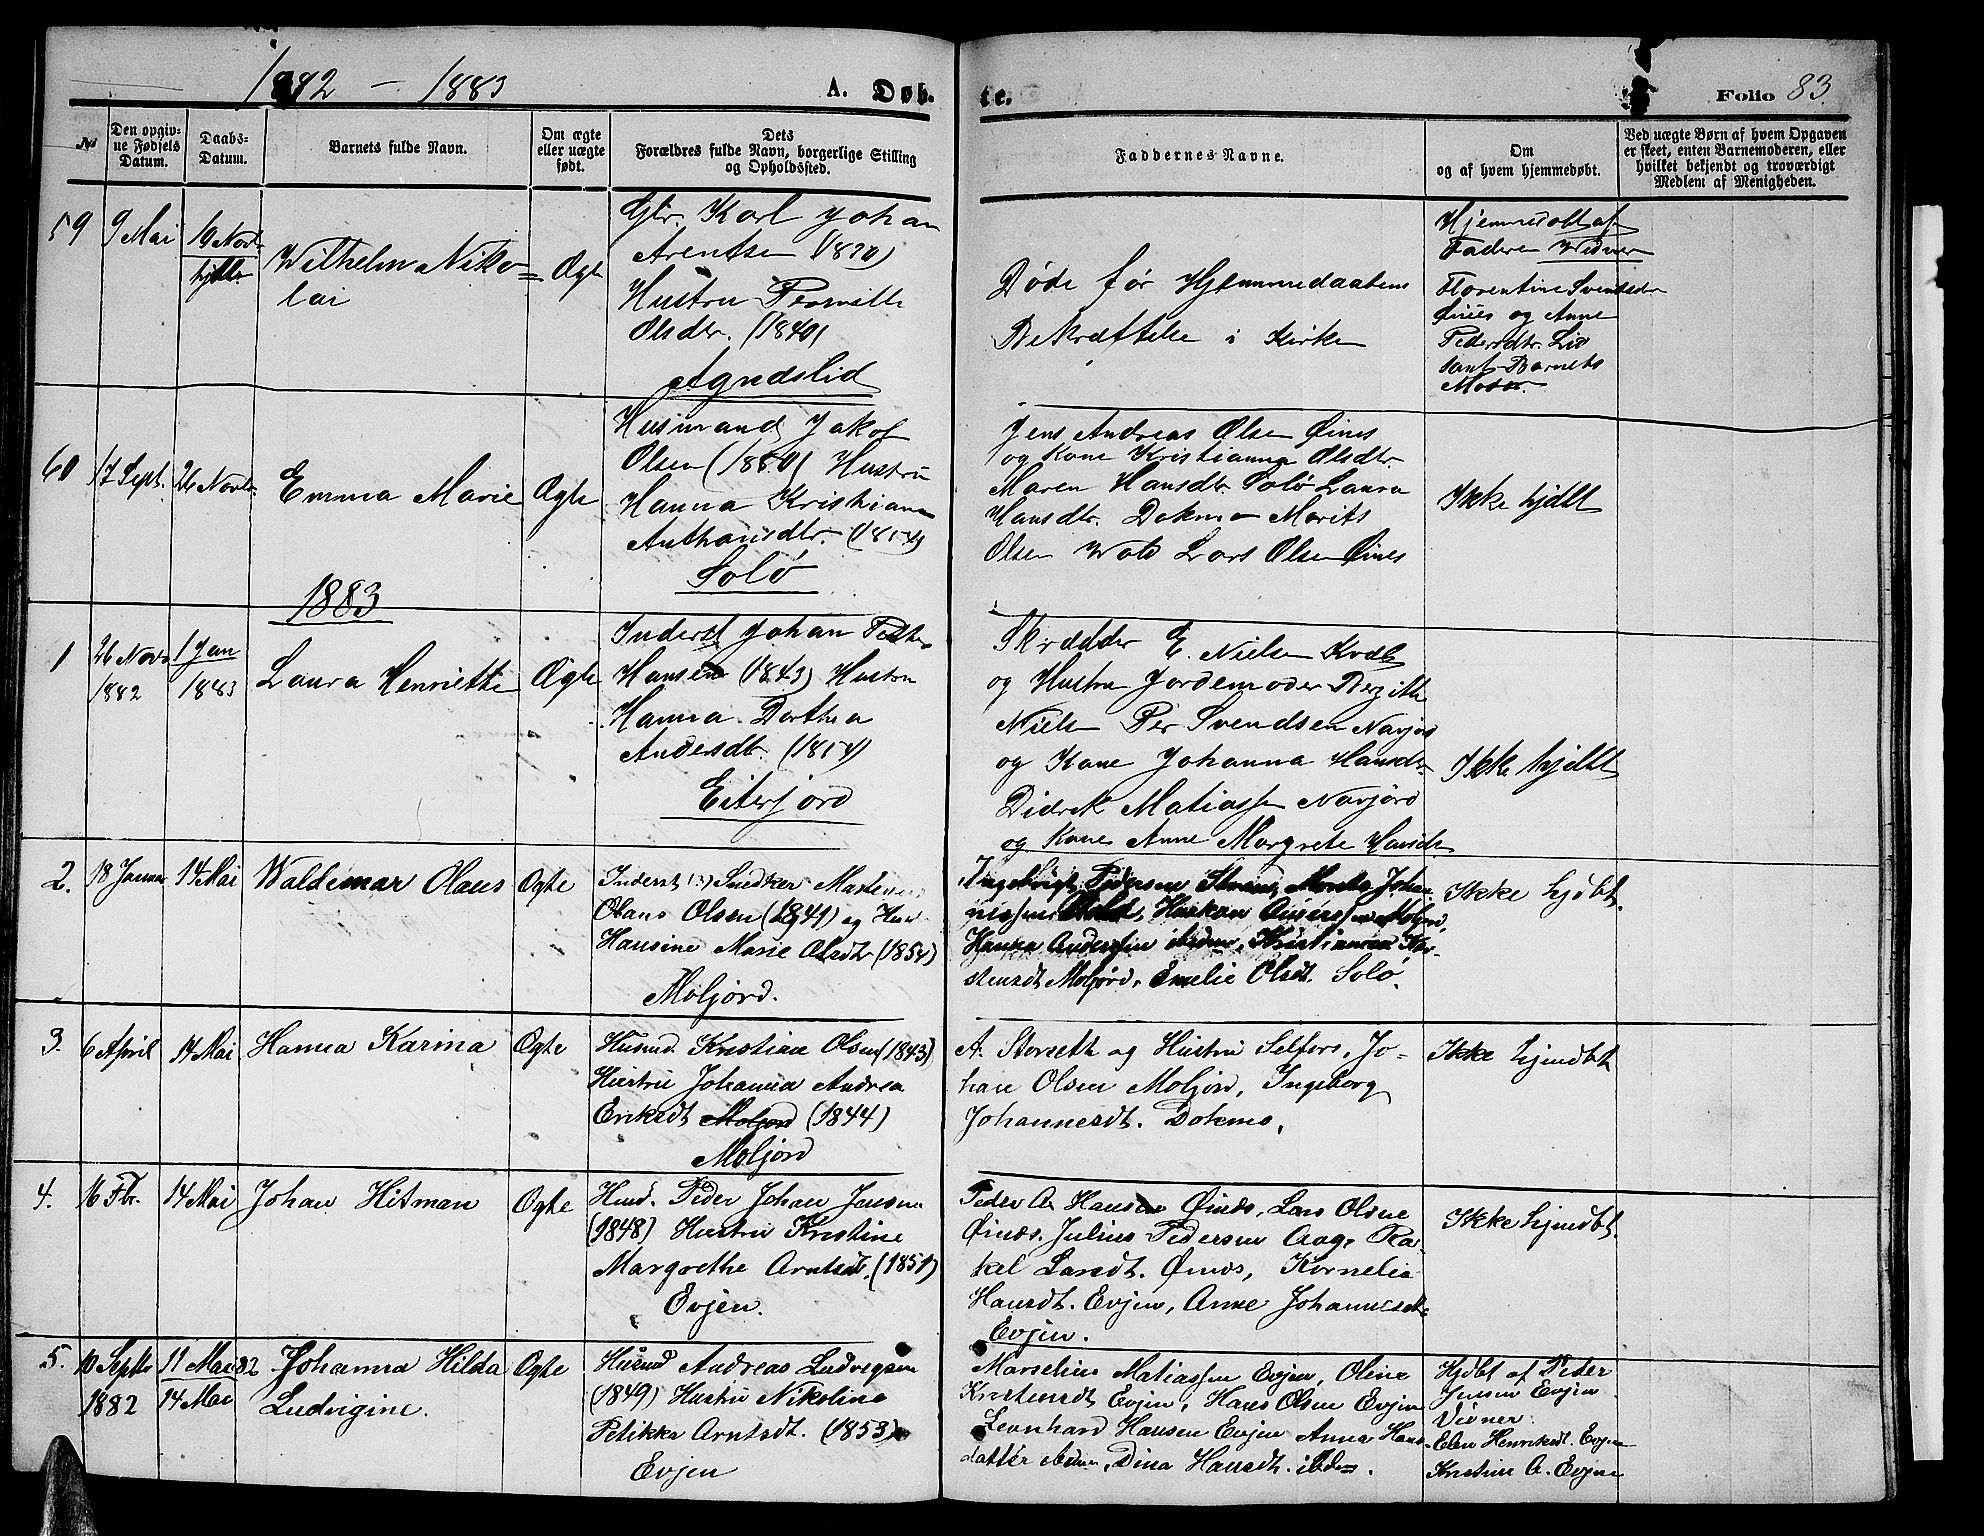 1882 - 1883
A. Døb-
te.
Folio 83.
No
Den opgiv-
ne Fødsels
Datum.
Daabs-
Datum.
Barnets fulde Navn.
Om ægte
eller uægte
født.
Dets
Forældres fulde Navn, borgerlige Stilling
og Opholdssted.
Faddernes Navne.
Om
og af hvem hjemmedøbt.
Ved uægte Børn af hvem Opgaven
er skeet, enten Barnemoderen, eller
hvilket bekjendt og troværdigt
Medlem af Menigheden.
59
9 Mai
Wilhelm Niko-
lai
Ægte
Karl Johan
Arentsen
Hustru Pernille
Olsdtr. (1840)
Agndslid
Døde før Hjemmedaabens
Bekræftelse i Kirke
Hjemmedøbt af
Faderen Widner
Florentine Svendsdr
Øines og Anne
Pedersdtr. Lid
samt Barnets
Moder.
60
17 Sept.
26 Novbr.
Emma Marie
Ægte
Husmand Jakob
Olsen (1850) Hustru
Hanna Kristiane
Anthonsdtr. (1854)
Solø
Jens Andreas Olsen Øines
og Kone Kristianna Olsdtr.
Maren Hansdtr. Solø Laura
Hansdtr. Dokmo Morits
Olsen Wold Lars Olsen Øines
Ikke hjdbt
1883
1
26 Novbr
1882
1 Jan
1883
Laura Henriette
Ægte
Inderst Johan Peter
Hansen (1843) Hustru
Hanna Dorthea
Andersdtr. (1854)
Eiterjord
Skrædder E. Nielsen
og Hustru Jordemoder Bergitte
Nielsen Per Svendsen Navjord
og Kone Johanna Hansdr
Didrek Matiassen Navjord
og Kone Anne Margrete Hansdr
Ikke hjdbt
2.
18 Januar
14 Mai
Waldemar Olaus
Ægte
Inderst Snedker
Olaus Olsen (1841) og Hust
Hansine Marie Olsdtr (1854)
Moljord.
Ingebrigt Pedersen Strand, Morits Johan-
nessen Wold, Haakon Moljord,
Hanna Andersen ibidem, Kristianna Kar-
stensdt Moljord, Emelie Olsdt. Solø.
Ikke hjdbt.
3.
6 April
14 Mai
Hanna Karina
Ægte
Husmd. Kristian Olsen (1843)
Hustru Johanna Andrea
Eriksdt Moljord (1844)
Moljord
A. Storseth og Hustru Selfors, Jo-
han Olsen Moljord, Ingeborg
Johannesdt. Dokmo.
Ikke hjmdbt
4.
16 Fbr.
14 Mai
Johan Hitman
Ægte
Husmd. Peder Johan Jensen
(1848) Hustru Kristine
Margrethe Arntsdt. (1851)
Evjen.
Peder A. Hansen Øines, Lars Olsen
Øines, Julius Pedersen Aage Ra-
kel Larsdt. Øines, Kornelia
Hansdt. Evjen, Anne Johannesdt.
Evjen.
Ikke hjmdbt.
5.
10 Septbr
1882
11 Mai 82
14 Mai
Johanna Hilda
Ludvigine.
Ægte
Husmd Andreas Ludvigsen
(1849) Hustru Nikoline
Petikka Arntsdt. (1853)
Evjen
Marselius Matiassen Evjen, Oline
Kristensdt Evjen, Hans Olsen Evjen
Leonhard Hansen Evjen Anna Hans-
datter ibidem, Dina Hansdt. ibidem.
Hjdbt af Peder
Jensen Evjen
Vidner:
Elen Henriksdt. Evjen
Kristine A. Evjen